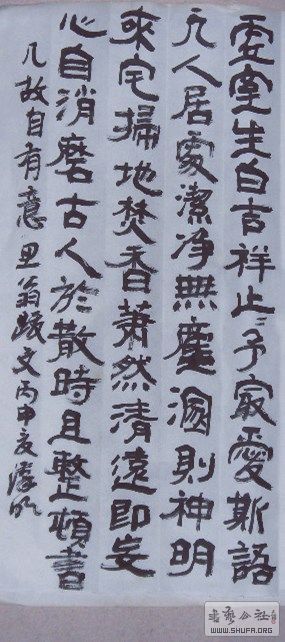 虛室生白吉祥止〻予最愛斯語
凡人居處潔淨無塵溷則神明
來宅掃地焚香蕭然清遠即妄
心自消磨古人於散時且整頓書
几故自有意 翁 文丙申
书艺公社
WWW.SHUFA.ORG